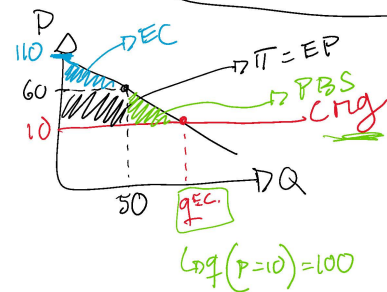 P
110
EC
π = EP
60
PBS
cmg
10
Q
50
qEC.
q(p=10)=100